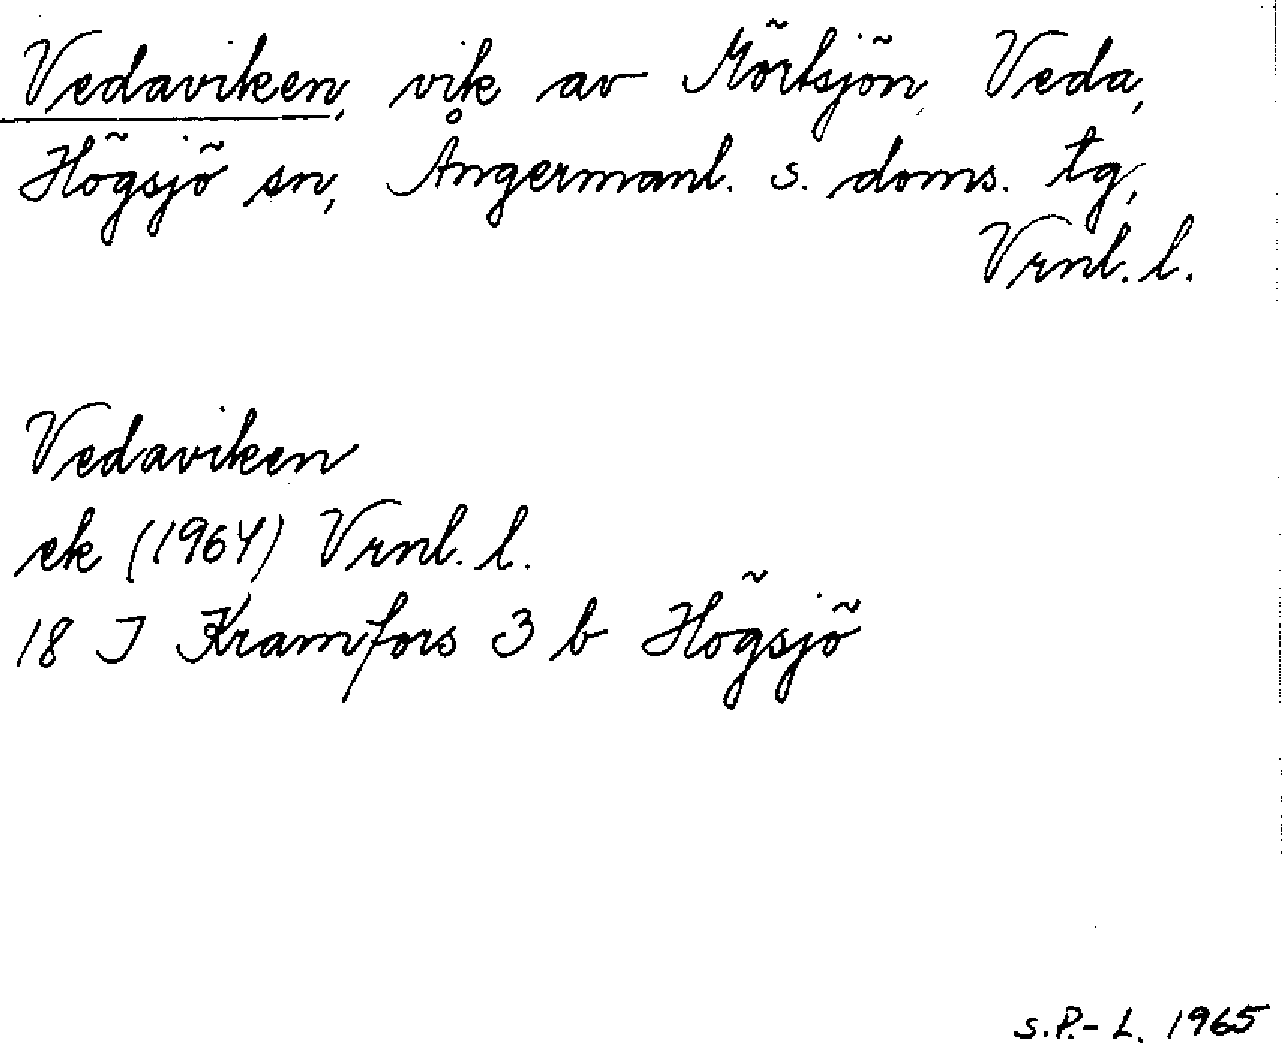 Vedaviken, vik av Mörtsjön, Veda,
Högsjö sn, Ångermanl. s. doms. tg,
Vrnl. l.
Vedaviken
ek (1964) Vrnl. l.
18 J Kramfors 3 b Högsjö
S.P.-L. 1965